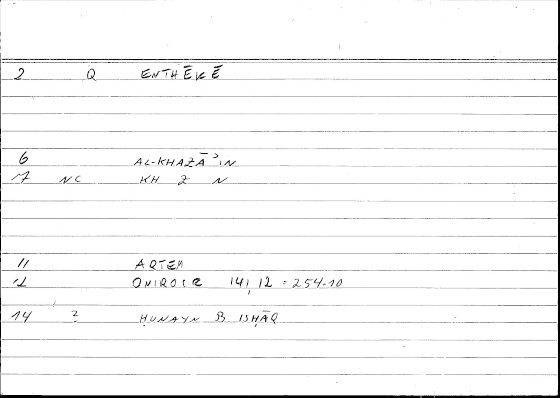 2 Q ENTHĒKĒ
6 AL-KHAZĀʾIN
17 NC KH Z N
11 ARTEM
12 ONIROCR 141,12 = 254.10
14 2 ḤUNAYN B ISḤĀQ